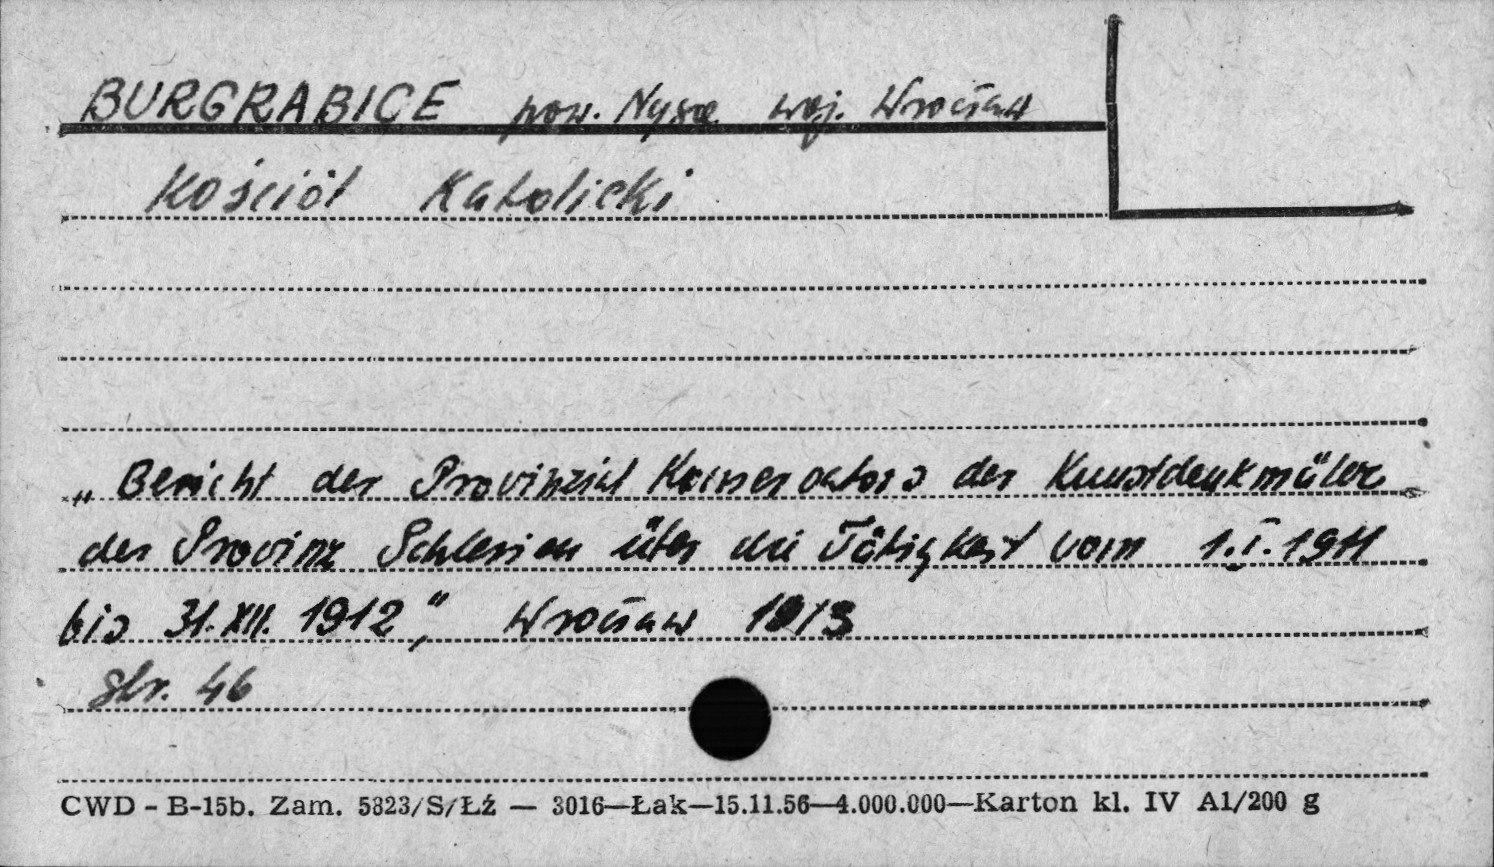 BURGRABICE pow. Nysa woj. Wrocław
Kościół Katolicki
„Bericht der Provinzial Konservators der Kunstdenkmäler
der Provinz Schlesien über die Tätigkeit vom 1.I.1911
bis 31.XII.1912", Wrocław 1913
str. 46
CWD - B-15b. Zam. 5823/S/Łź — 3016—Łak—15.11.56—4.000.000—Karton kl. IV A1/200 g